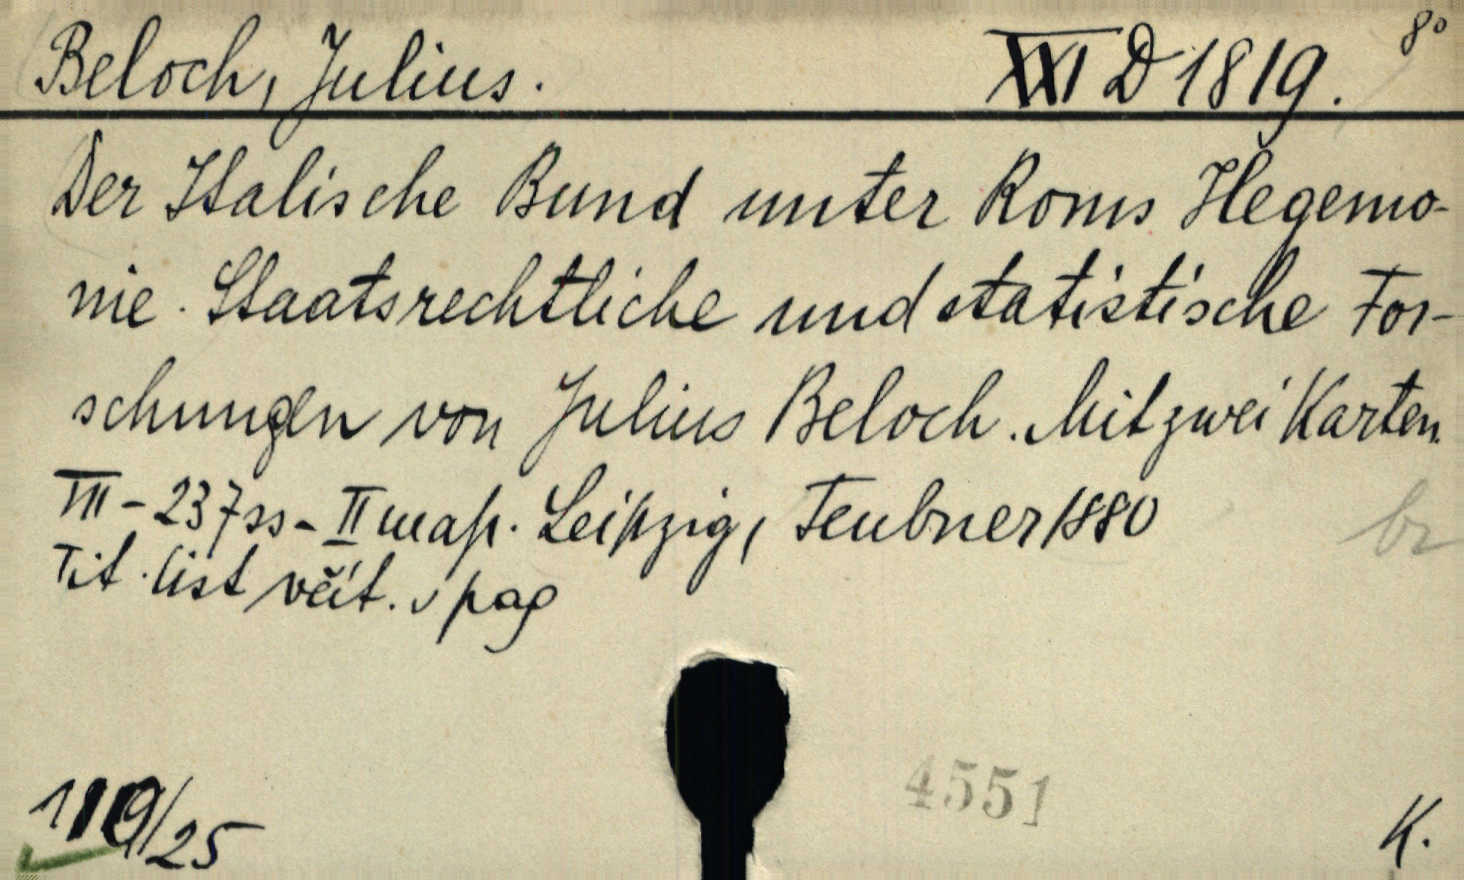 Beloch, Julius. XXI D 1819. 8°
Der Italische Bund unter Roms Hegemo-
nie. Staatsrechtliche und statistische For-
schungen von Julius Beloch. Mit zwei Karten
VII - 237 ss - II map. Leipzig, Teubner 1880
br
Tit. list včít. v pag
4551
/25
K.